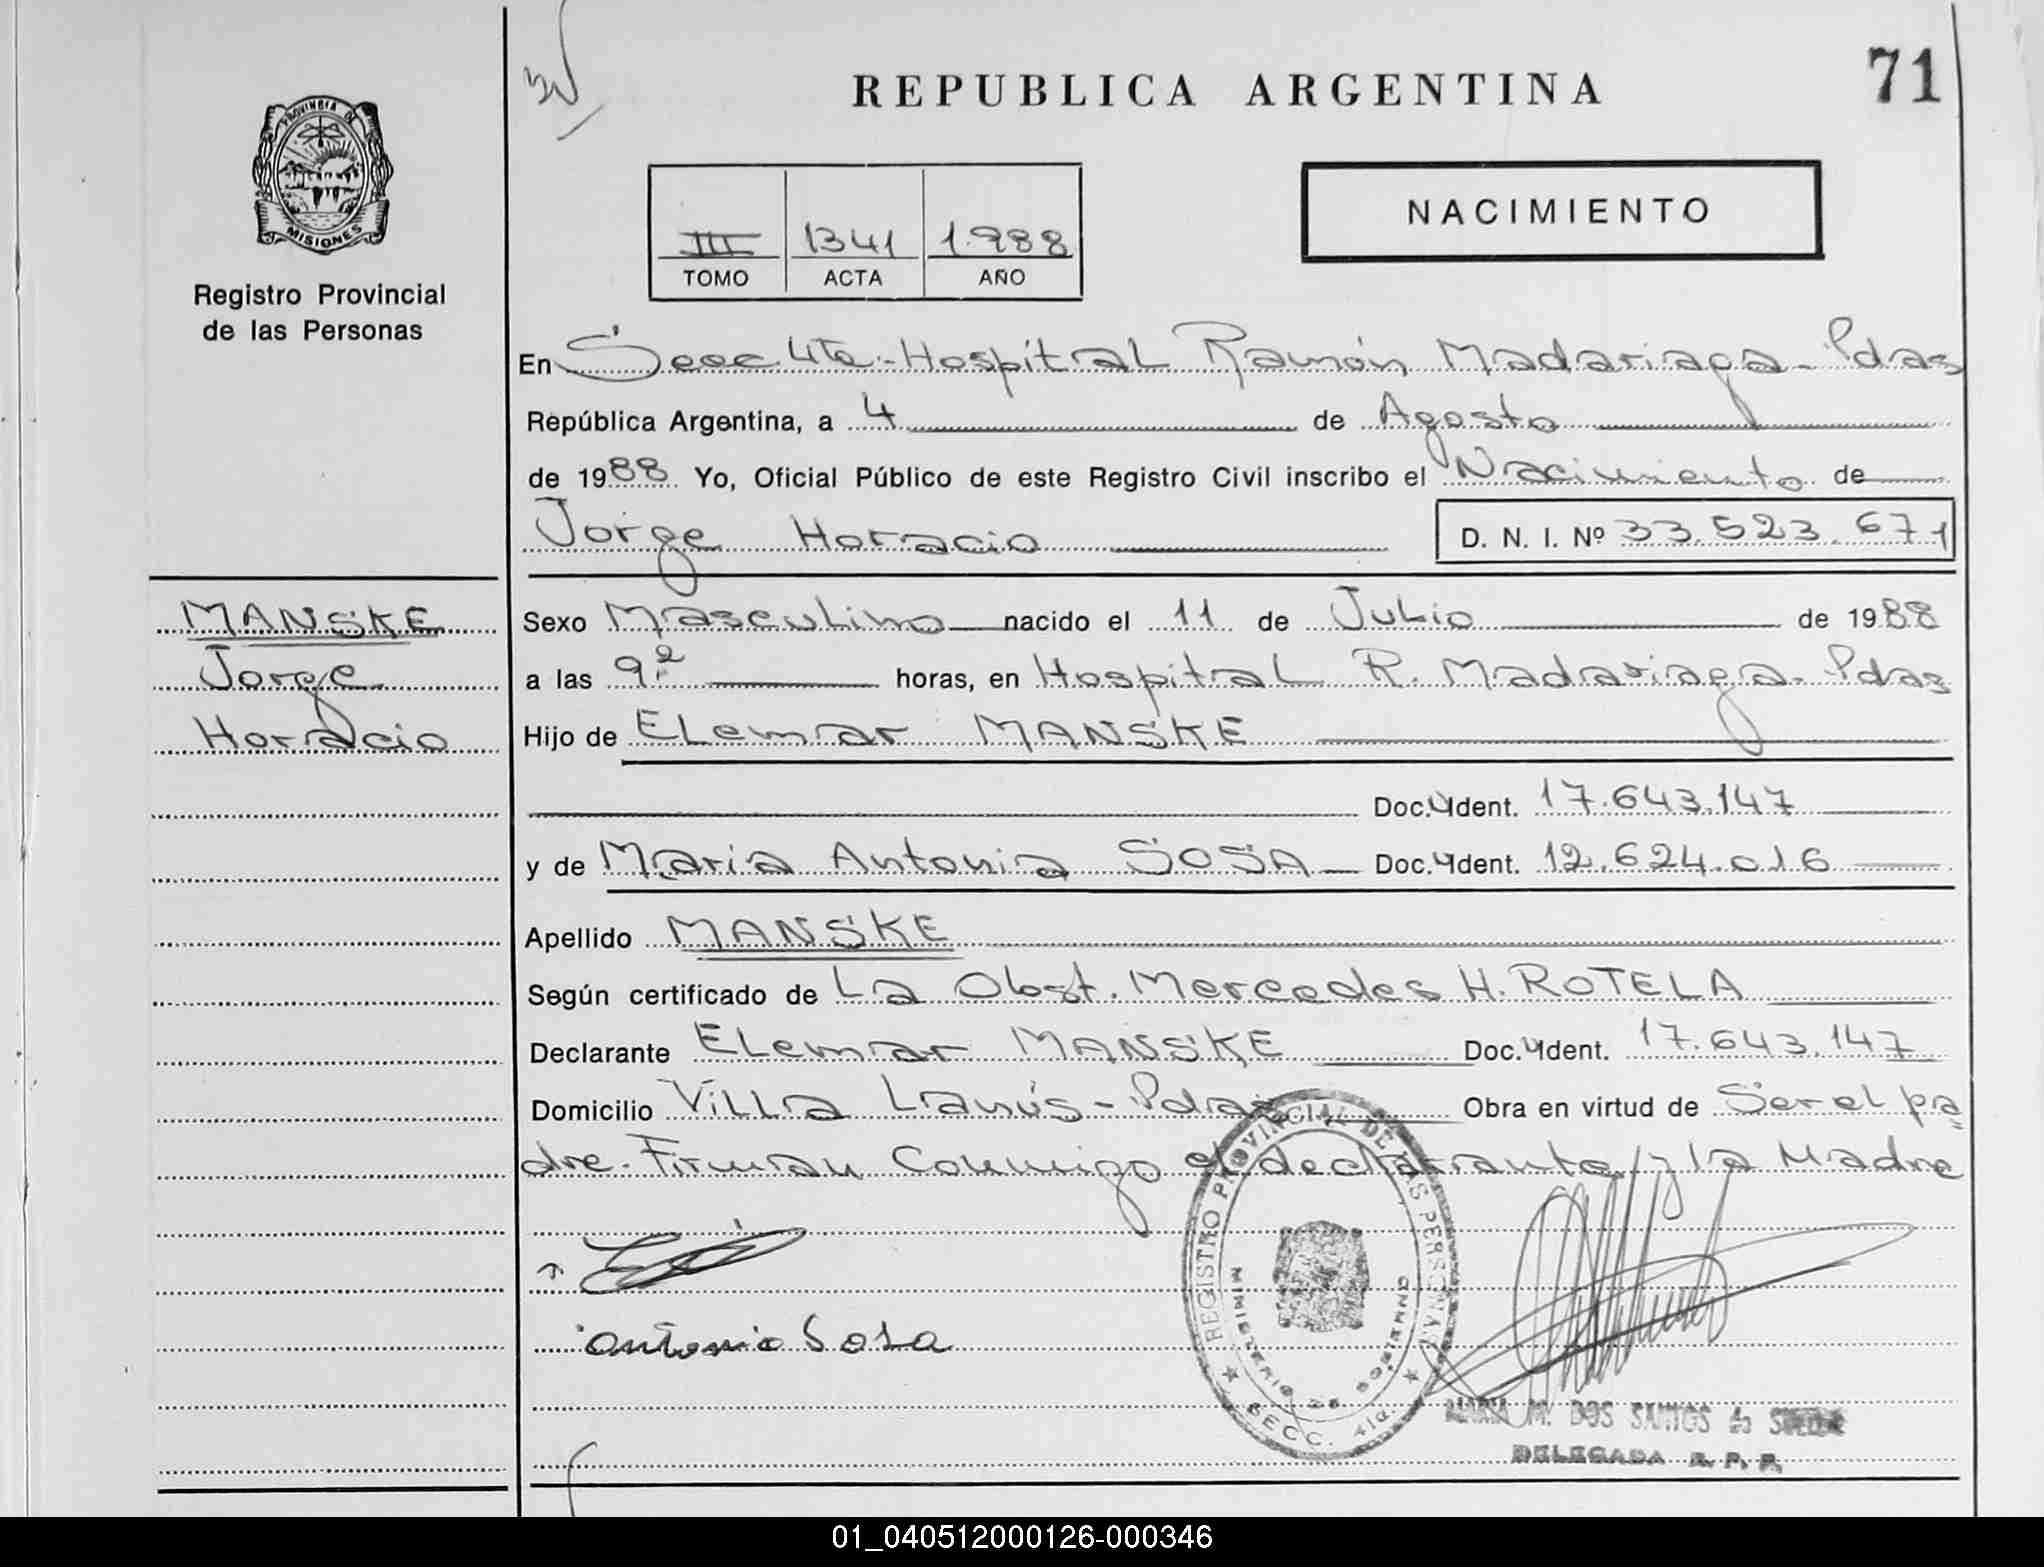 71
REPUBLICA ARGENTINA
PROVINCIA DE
MISIONES
Registro Provincial
de las Personas
NACIMIENTO
III 1341 1.988
TOMO ACTA AÑO
En Secc. 4ta.-Hospital Ramón Madariaga- Pdas
República Argentina, a 4 de Agosto
de 1988 Yo, Oficial Público de este Registro Civil inscribo el Nacimiento de
Jorge Horacio D. N. I. Nº 33.523.671
MANSKE
Jorge
Horacio
Sexo Masculino nacido el 11 de Julio de 1988
a las 9 horas, en Hospital R. Madariaga- Pdas
Hijo de Elemar MANSKE
Doc. Ident. 17.643.147
y de Maria Antonia SOSA Doc. Ident. 12.624.016
Apellido MANSKE
Según certificado de La Obst. Mercedes H. ROTELA
Declarante Elemar MANSKE Doc. Ident. 17.643.147
Domicilio Villa Lanús - Pdas Obra en virtud de Ser el pa
dre. Firman Conmigo el declarante y la Madre
antonia Sosa
REGISTRO PROVINCIAL DE LAS PERSONAS
MINISTERIO DE GOBIERNO
SECC. 4ta.
MARIA M. DOS SANTOS de
DELEGADA R. P. P.
01_040512000126-000346